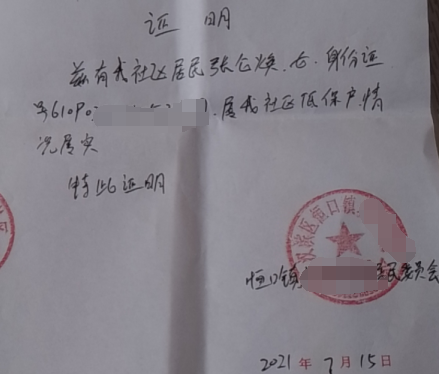 证 明
兹有我社区居民张仓焕,女,身份证
号6109,属我社区低保户,情
况属实
特此证明
汉滨区恒口镇
恒口镇 居民委员会
2021年7月15日